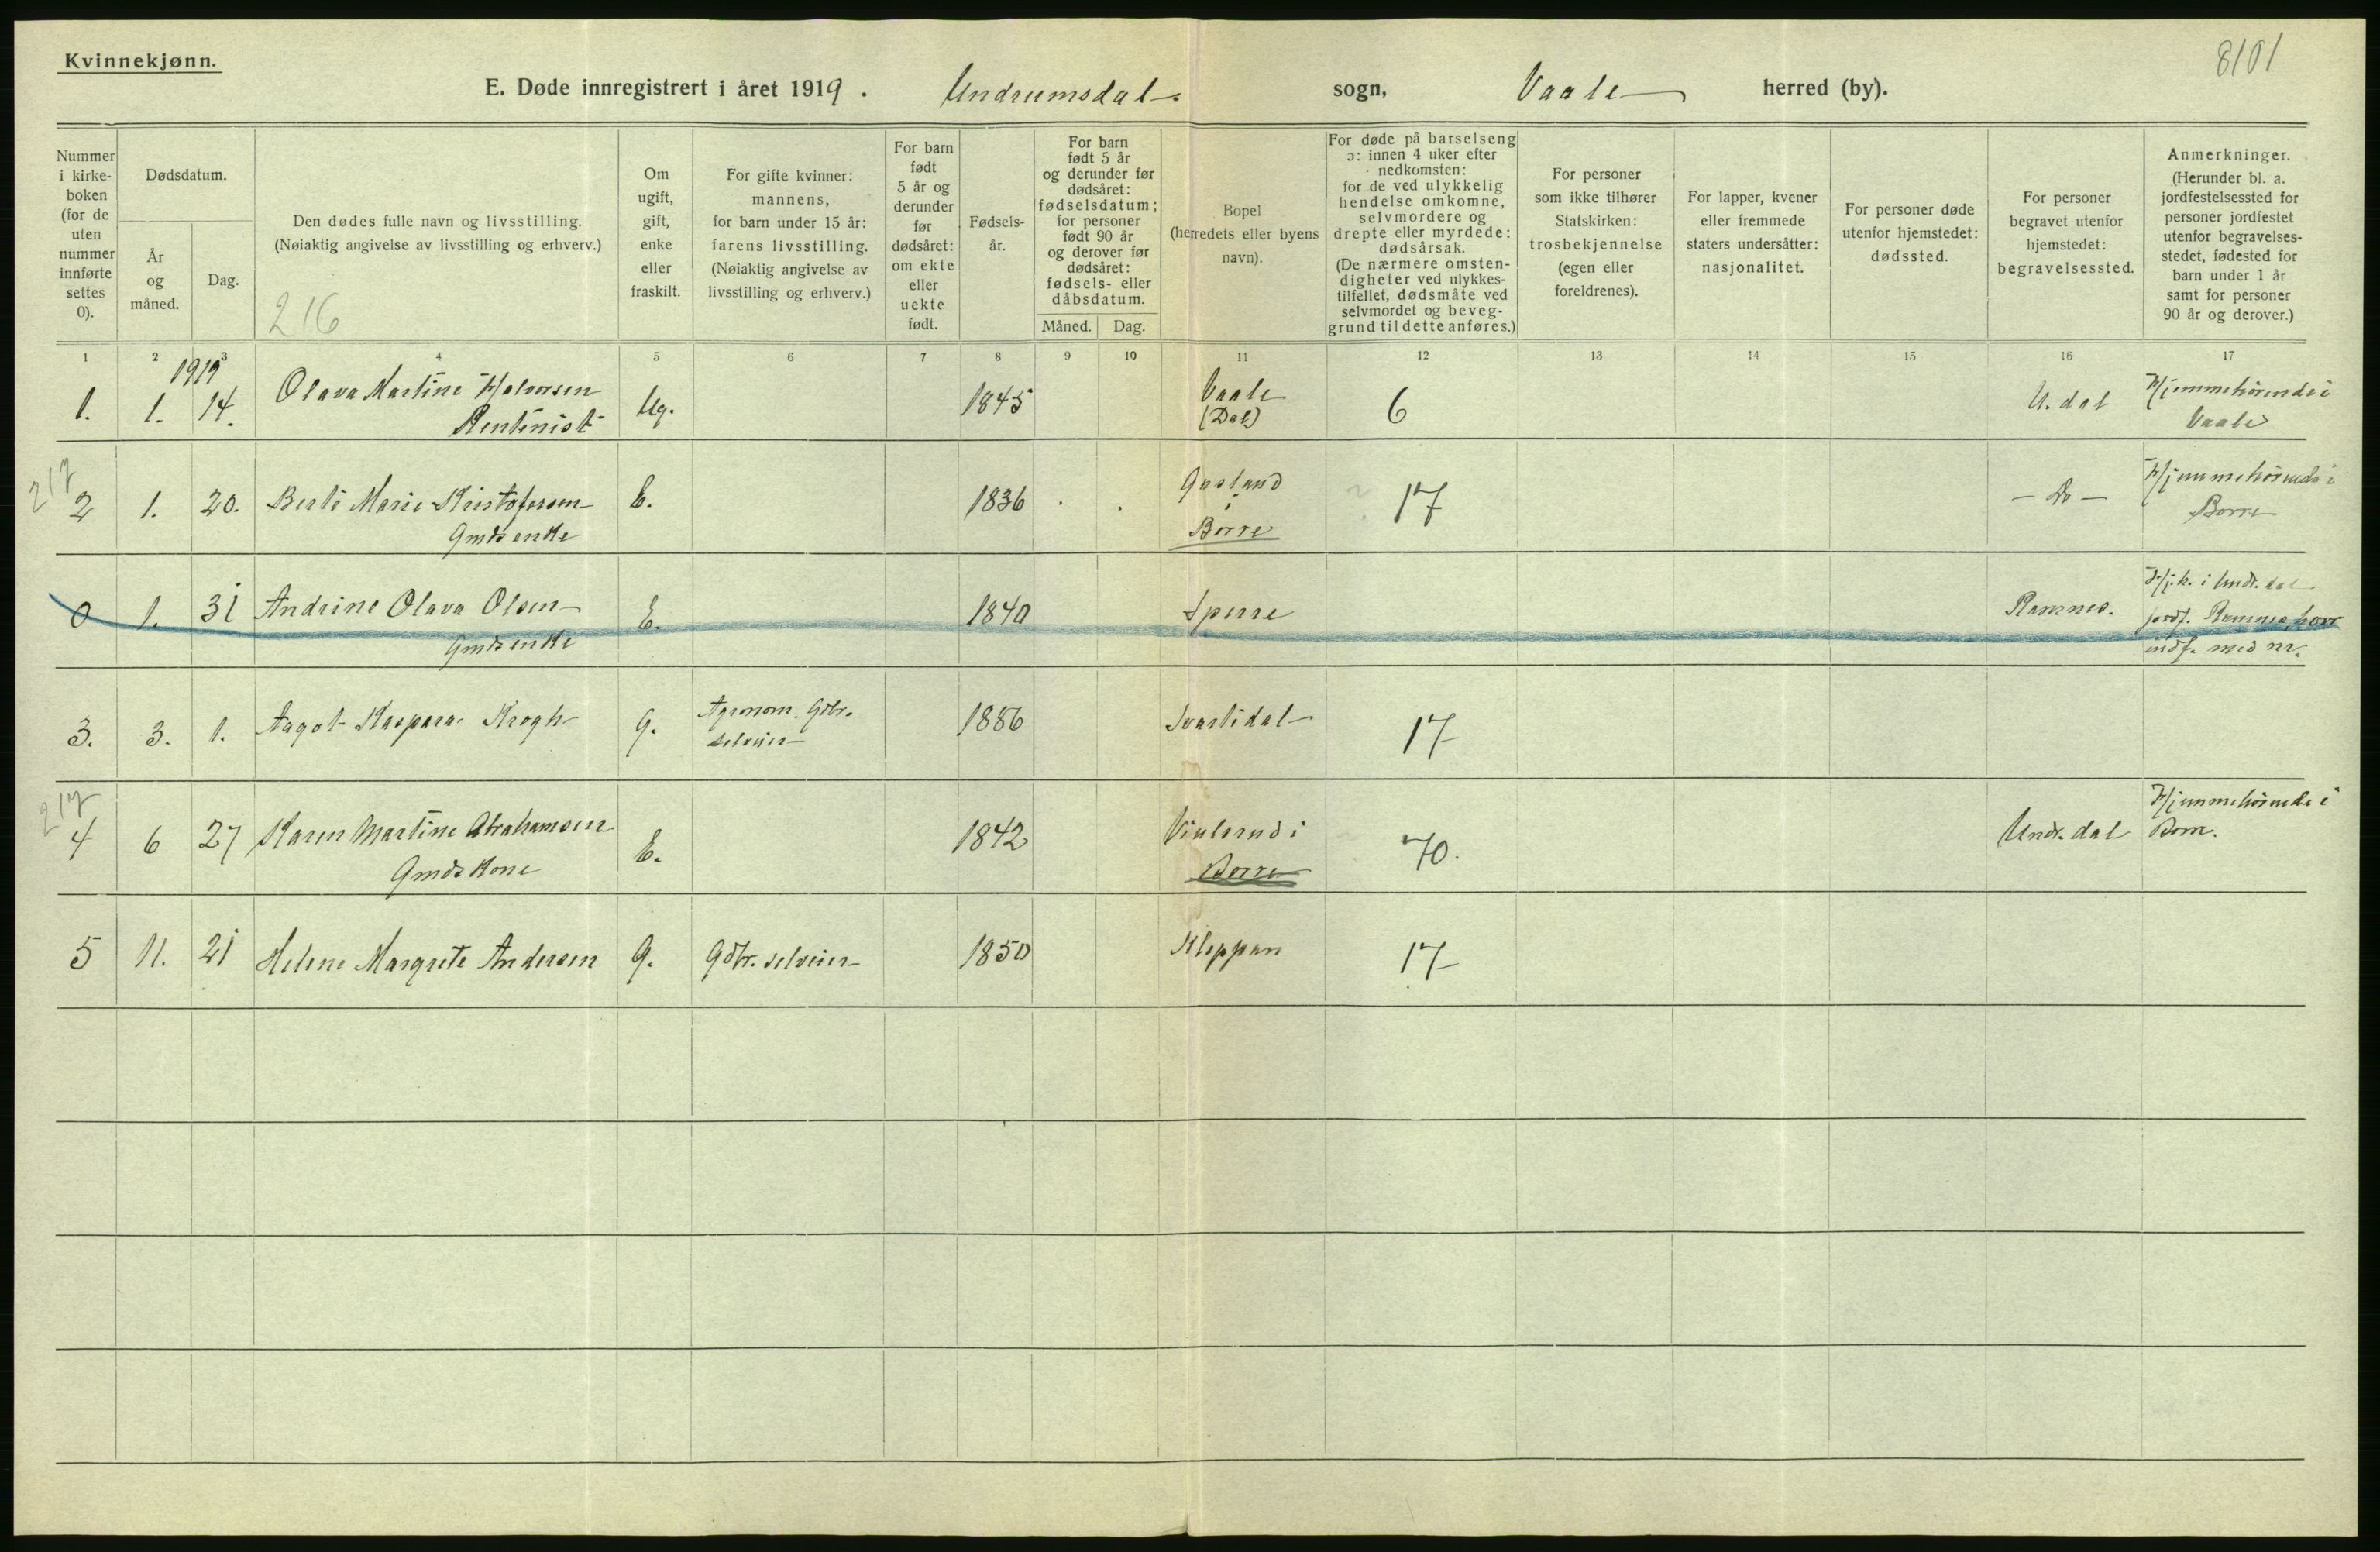 Kvinnekjønn.
8101
E. Døde innregistrert i året 1919. Undrumsdal sogn, Vaale herred (by).
Nummer i kirke-boken (for de uten nummer innførte settes 0).
Dødsdatum.
År og måned.
Dag.
Den dødes fulle navn og livsstilling.
(Nøiaktig angivelse av livsstilling og erhverv.)
216
Om ugift, gift, enke eller fraskilt.
For gifte kvinner: mannens, for barn under 15 år: farens livsstilling. (Nøiaktig angivelse av livsstilling og erhverv.)
For barn født 5 år og derunder før dødsåret: om ekte eller uekte født.
Fødsels-år.
For barn født 5 år og derunder før dødsåret: fødselsdatum; for personer født 90 år og derover før dødsåret: fødsels- eller dåbsdatum.
Måned. Dag.
Bopel (herredets eller byens navn).
For døde på barselseng ɔ: innen 4 uker efter nedkomsten: for de ved ulykkelig hendelse omkomne, selvmordere og drepte eller myrdede: dødsårsak. (De nærmere omsten-digheter ved ulykkes-tilfellet, dødsmåte ved selvmordet og beveg-grund til dette anføres.)
For personer som ikke tilhører Statskirken: trosbekjennelse (egen eller foreldrenes).
For lapper, kvener eller fremmede staters undersåtter: nasjonalitet.
For personer døde utenfor hjemstedet: dødssted.
For personer begravet utenfor hjemstedet: begravelsessted.
Anmerkninger. (Herunder bl. a. jordfestelsessted for personer jordfestet utenfor begravelses-stedet, fødested for barn under 1 år samt for personer 90 år og derover.)
1 2 3 4 5 6 7 8 9 10 11 12 13 14 15 16 17
1919
1. 1. 14. Olava Martine Halvorsen Ug. 1845 Vaale 6 U. dal Hjemmehörende i
Rentenist (Dal) Vaale
217
2 1. 20. Berte Marie Kristofersen E. 1836 Gasland i 17 - Do - Hjemmehörende i
Gmds enke Borre Borre
0 1. 31 Andrine Olava Olsen E. 1840 Sperre Ramnes. Hjh. i Undr. dal
Gmds enke jordf. Ramnes, hvor
indf. med nr.
3. 3. 1. Aagot Kaspara Krogh G. Agronom. Gdbr. 1886 Svartidal 17
selveier
217
4 6 27 Karen Martine Abrahamsen E. 1842 i 70. Undr. dal Hjemmehörende i
Gmds Kone Borre Borre.
5 11. 21 Helene Margrete Andersen G. Gdbr. selveier 1850 Kleppan 17